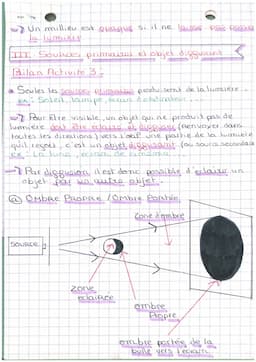 => Un milieu est opaque s'il ne laisse pas passer
la lumière
III. Sources primaires et objet diffusant
Bilan Activité 3.
* Seules les sources primaires produisent de la lumière.
ex: Soleil, lampe, écran d'ordinateur...
=> Pour être visible, un objet qui ne produit pas de
lumière doit être éclairé et diffusant (renvoyer dans
toutes les directions) vers l'œil une partie de la lumière
qu'il reçoit, c'est un objet diffusant (ou source secondaire)
ex: La lune, écran de cinéma
=> Par diffusion il est donc possible d'éclairer un
objet par un autre objet.
@ OMBRE PROPRE / OMBRE PORTÉE
zone d'ombre
SOURCE
zone
éclairée
ombre
propre
ombre portée de la
boule vers l'écran